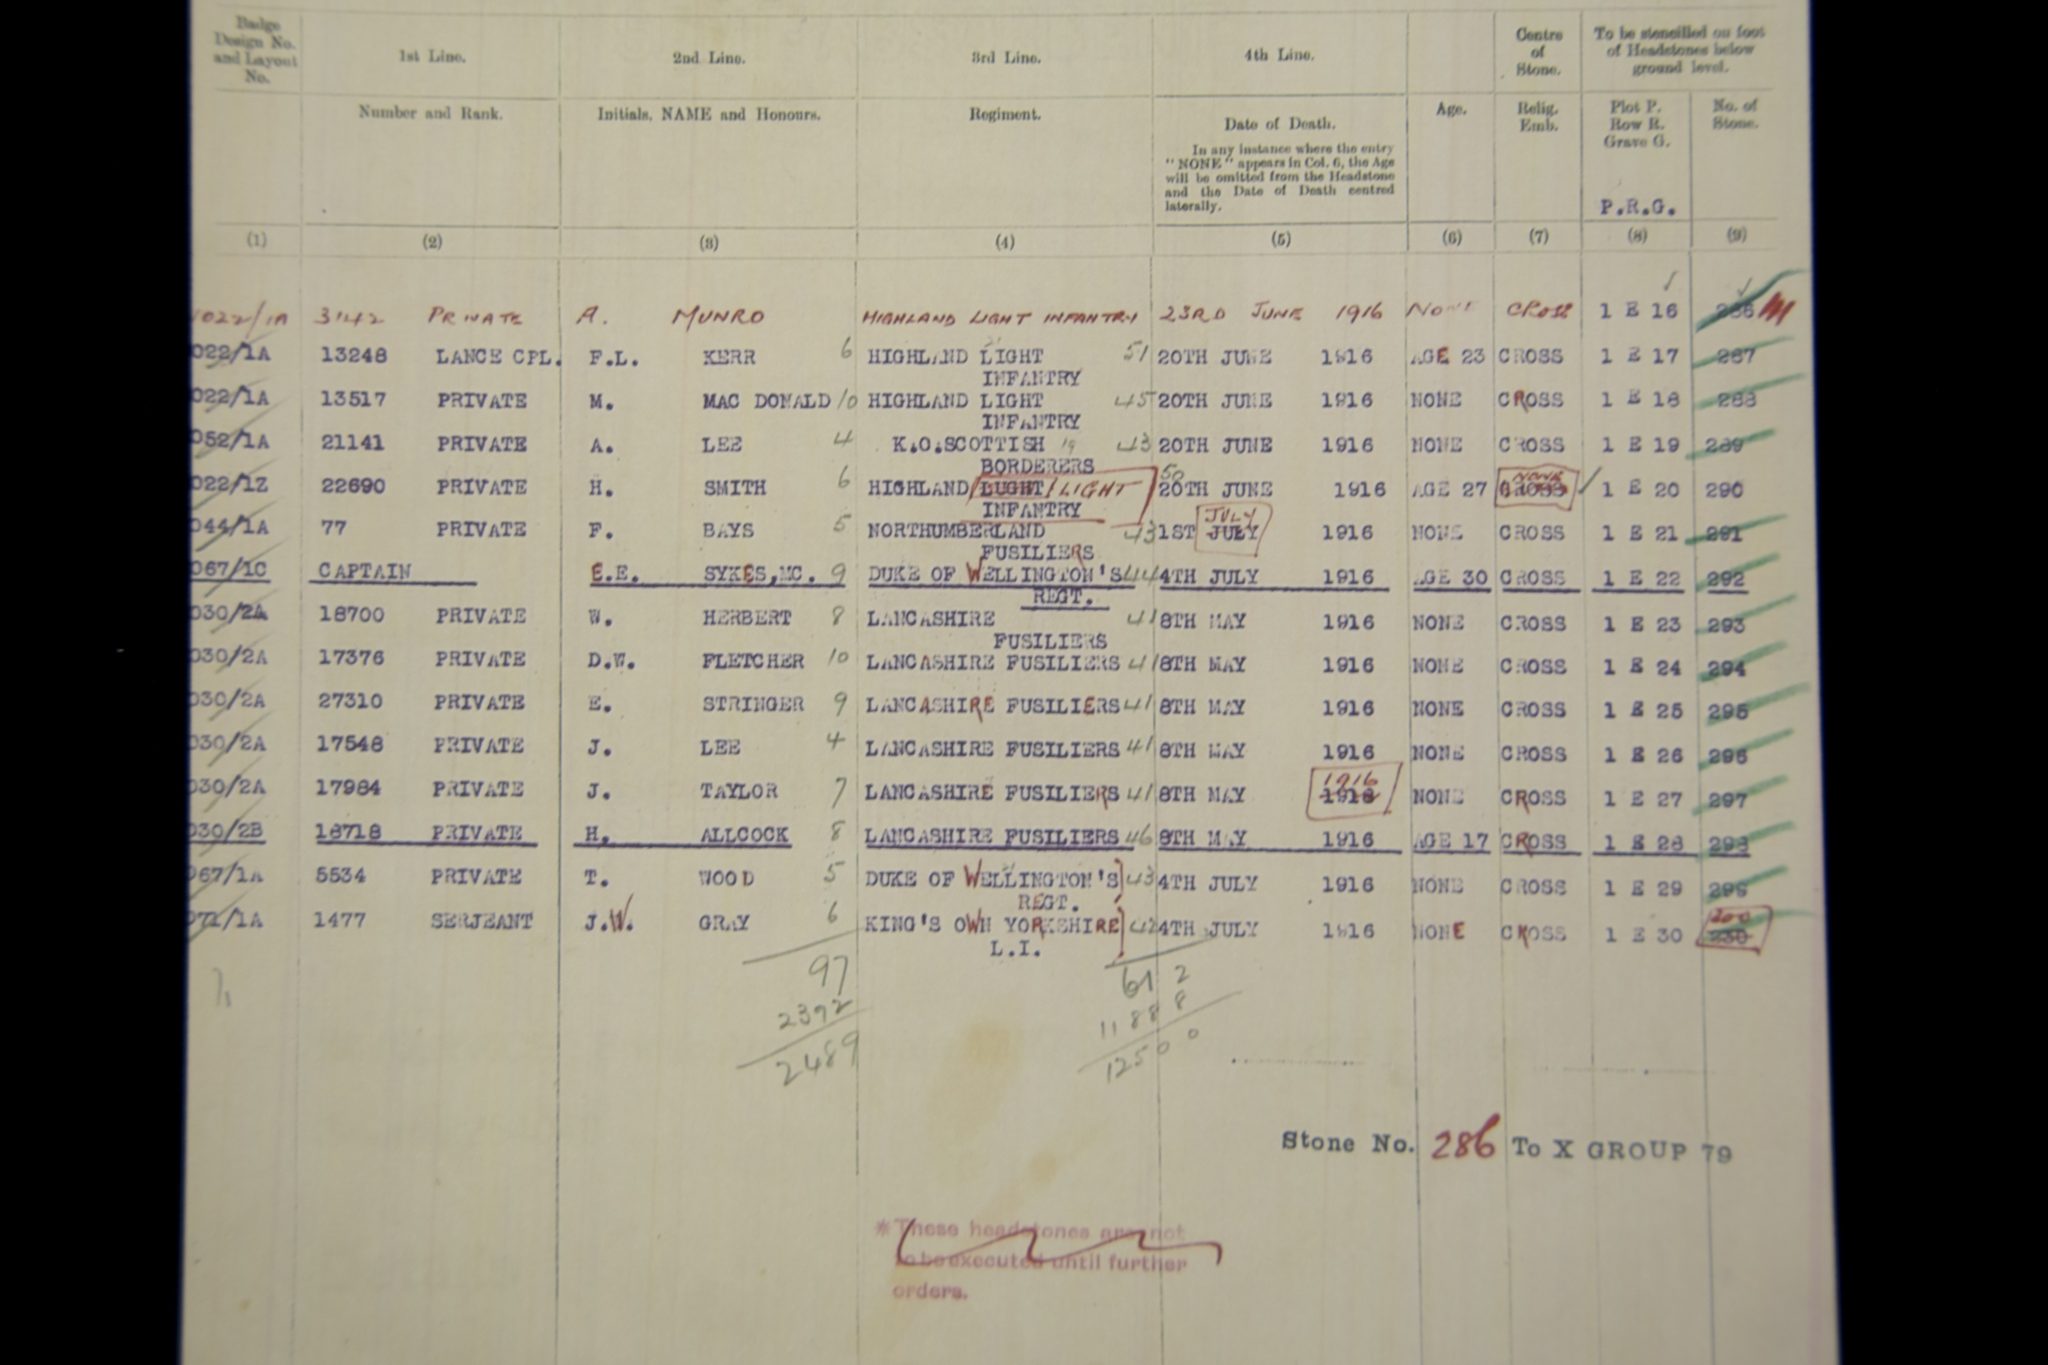 Badge Design No. and Layout No. 1st Line. 2nd Line. 3rd Line. 4th Line. Centre of Stone. To be stencilled on foot of Headstones below ground level.
Number and Rank. Initials, NAME and Honours. Regiment. Date of Death. Age. Relig. Emb. Plot P. Row R. Grave G. No. of Stone.
In any instance where the entry
"NONE" appears in Col. 6, the Age
will be omitted from the Headstone
and the Date of Death centred
laterally.
P.R.G.
(1) (2) (3) (4) (5) (6) (7) (8) (9)
1022/1A 3142 PRIVATE A. MUNRO HIGHLAND LIGHT INFANTRY 23RD JUNE 1916 NONE CROSS 1 E 16 286
022/1A 13248 LANCE CPL. F.L. KERR 6 HIGHLAND LIGHT 51 20TH JUNE 1916 AGE 23 CROSS 1 E 17 287
INFANTRY
022/1A 13517 PRIVATE M. MAC DONALD 10 HIGHLAND LIGHT 45 20TH JUNE 1916 NONE CROSS 1 E 18 288
INFANTRY
052/1A 21141 PRIVATE A. LEE 4 K.O.SCOTTISH 19 43 20TH JUNE 1916 NONE CROSS 1 E 19 289
BORDERERS
022/1Z 22690 PRIVATE H. SMITH 6 HIGHLAND LIGHT 50 20TH JUNE 1916 AGE 27 NONE CROSS 1 E 20 290
INFANTRY
044/1A 77 PRIVATE F. BAYS 5 NORTHUMBERLAND 43 1ST JULY JULY 1916 NONE CROSS 1 E 21 291
FUSILIERS
067/1C CAPTAIN E.E. SYKES,MC. 9 DUKE OF WELLINGTON'S 44 4TH JULY 1916 AGE 30 CROSS 1 E 22 292
REGT.
030/2A 18700 PRIVATE W. HERBERT 8 LANCASHIRE 41 8TH MAY 1916 NONE CROSS 1 E 23 293
FUSILIERS
030/2A 17376 PRIVATE D.W. FLETCHER 10 LANCASHIRE FUSILIERS 41 8TH MAY 1916 NONE CROSS 1 E 24 294
030/2A 27310 PRIVATE E. STRINGER 9 LANCASHIRE FUSILIERS 41 8TH MAY 1916 NONE CROSS 1 E 25 295
030/2A 17548 PRIVATE J. LEE 4 LANCASHIRE FUSILIERS 41 8TH MAY 1916 NONE CROSS 1 E 26 296
030/2A 17984 PRIVATE J. TAYLOR 7 LANCASHIRE FUSILIERS 41 8TH MAY 1916 1918 NONE CROSS 1 E 27 297
030/2B 18718 PRIVATE H. ALLCOCK 8 LANCASHIRE FUSILIERS 46 8TH MAY 1916 AGE 17 CROSS 1 E 28 298
067/1A 5534 PRIVATE T. WOOD 5 DUKE OF WELLINGTON'S 43 4TH JULY 1916 NONE CROSS 1 E 29 299
REGT.
071/1A 1477 SERJEANT J.W. GRAY 6 KING'S OWN YORKSHIRE 42 4TH JULY 1916 NONE CROSS 1 E 30 230
L.I.
97
2392
2489
612
11888
12500
Stone No. 286 To X GROUP 79
*These headstones are not
to be executed until further
orders.